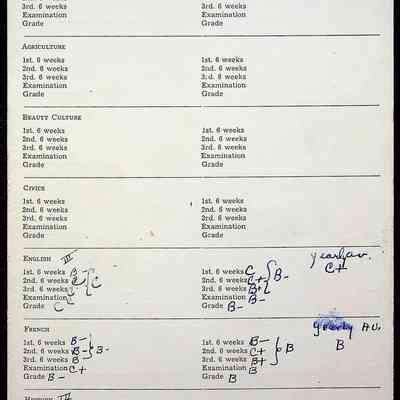 3rd. 6 weeks 3rd. 6 weeks
Examination Examination
Grade Grade
AGRICULTURE
1st. 6 weeks 1st. 6 weeks
2nd. 6 weeks 2nd. 6 weeks
3rd. 6 weeks 3rd. 6 weeks
Examination Examination
Grade Grade
BEAUTY CULTURE
1st. 6 weeks 1st. 6 weeks
2nd. 6 weeks 2nd. 6 weeks
3rd. 6 weeks 3rd. 6 weeks
Examination Examination
Grade Grade
CIVICS
1st. 6 weeks 1st. 6 weeks
2nd. 6 weeks 2nd. 6 weeks
3rd. 6 weeks 3rd. 6 weeks
Examination Examination
Grade Grade
ENGLISH III yearly av.
1st. 6 weeks B- 1st. 6 weeks C C+
2nd. 6 weeks C C 2nd. 6 weeks C+ B-
3rd. 6 weeks 3rd. 6 weeks B+
Examination Examination B-
Grade C Grade B-
FRENCH yearly Av.
1st. 6 weeks B- 1st. 6 weeks B- B
2nd. 6 weeks B- B- 2nd. 6 weeks C+ B
3rd. 6 weeks B 3rd. 6 weeks B+
Examination C+ Examination B
Grade B- Grade B
HISTORY IV